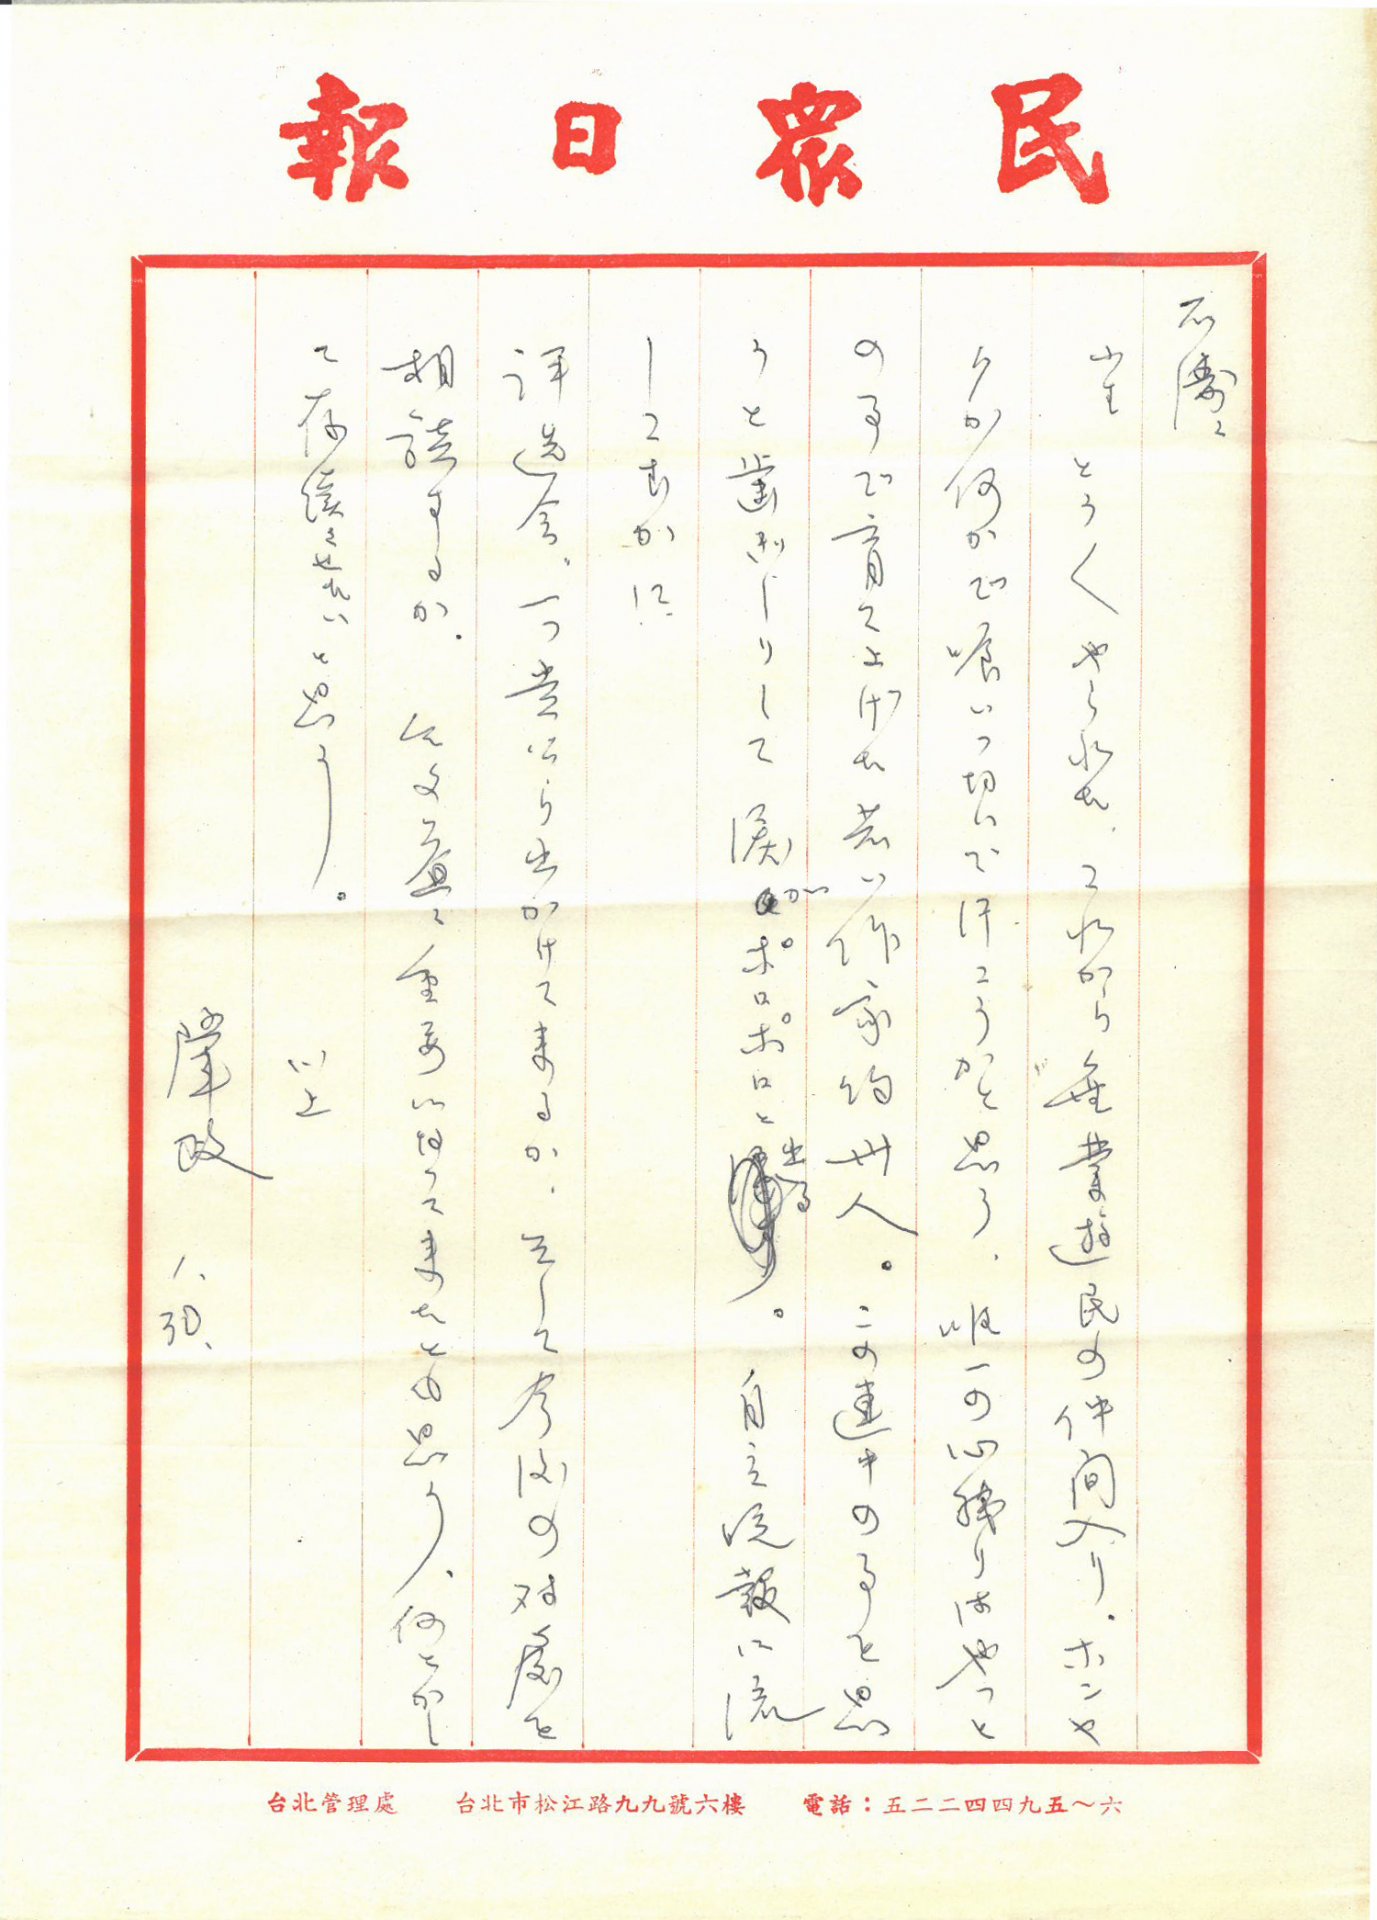 民眾日報
石濤に
とう〱やられた、これから無業遊民の仲間入り。ホンヤ
クか何かで喰いつ切いで行こうかと思う、唯一の心残りはやっと
の事で育て上げた若い作家約卅人。この連中の事を思
うと歯ぎしりして涙がポロポロと出る。自立晩報に流
してむかに
評選会、一つ貴公から出かけて来るか、そして今後の対處を
相談するか。に文台に重要になって来たとも思う、何とかし
て存続させたいと思う。
以上
肇政
八、30、
台北管理處 台北市松江路九九號六樓 電話：五二二四四九五～六